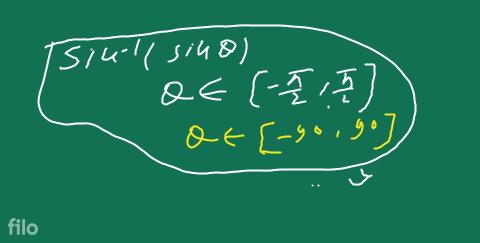 sin⁻¹(sin θ)
θ ∈ [-π/2, π/2]
θ ∈ [-90, 90]
filo